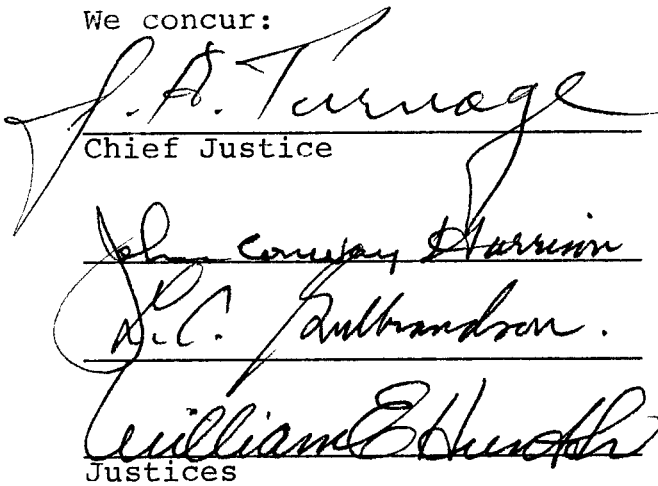 We concur:
J. A. Turnage
Chief Justice
John Conway Harrison
L. C. Gulbrandson.
William E Hunt Jr
Justices